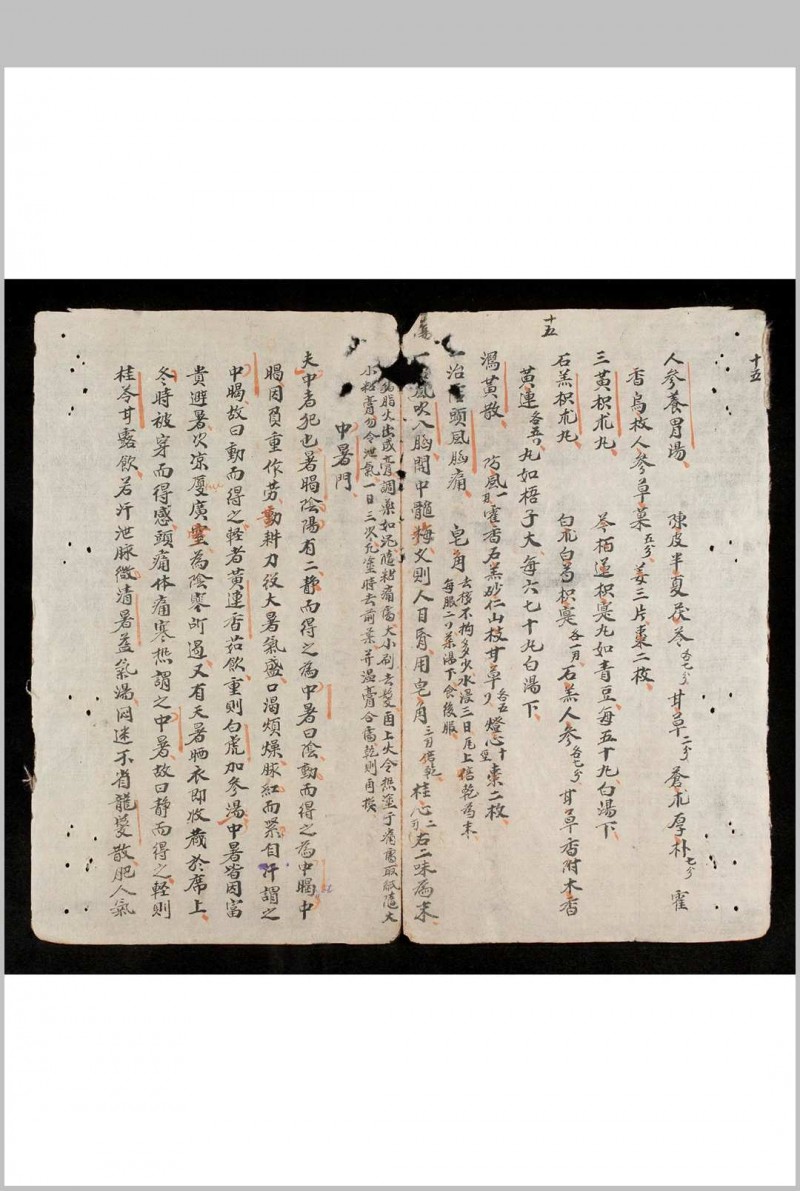 十五
人參養胃湯 陳皮半夏茯苓各七分甘草二分蒼朮厚朴七分霍
香烏枚人參草菓五分姜三片棗二枚
三黃枳朮丸 芩栢連枳寔丸如青豆每五十九白湯下
石羔枳朮丸 白朮白芍枳寔各一月石羔人參各七分甘草香附木香
十五
黃連各五丸如梧子大每六七十九白湯下
瀉黃散 防風霍香石羔砂仁山枝甘草各五燈心十棗二枚
治頭風腦痛 皂角去筏不拘多少水浸三日瓦上焙乾為末
每服二茶湯下食後服
風吹入腦間中髓則人目昏用皂角焙乾桂心二右二味為末
脂火出成膏調藥如泥隨粘痛處大小剧去髮面上火令熱塗于痛處取紙隨大
小松膏勿令泄氣一日三次充塗時去前葉并温膏合處乾則再換
中暑門
夫中者犯也暑暍陰陽有二静而得之為中暑曰陰動而得之為中暍中
暍因負重作劳動耕刀役大暑氣盛口渴煩燥脉紅而緊自汗謂之
中暍故曰動而得之輕者黃連香茹飲重則白虎加參湯中暑皆因富
貴避暑次凉廈廣室為陰寒所遏又有天暑晒衣即收藏於席上
冬時被穿而得感頭痛体痛寒熱謂之中暑故曰静而得之輕則
桂苓甘露飲若汗泄脉微清暑益氣湯悶迷不省龍姜散肥人氣